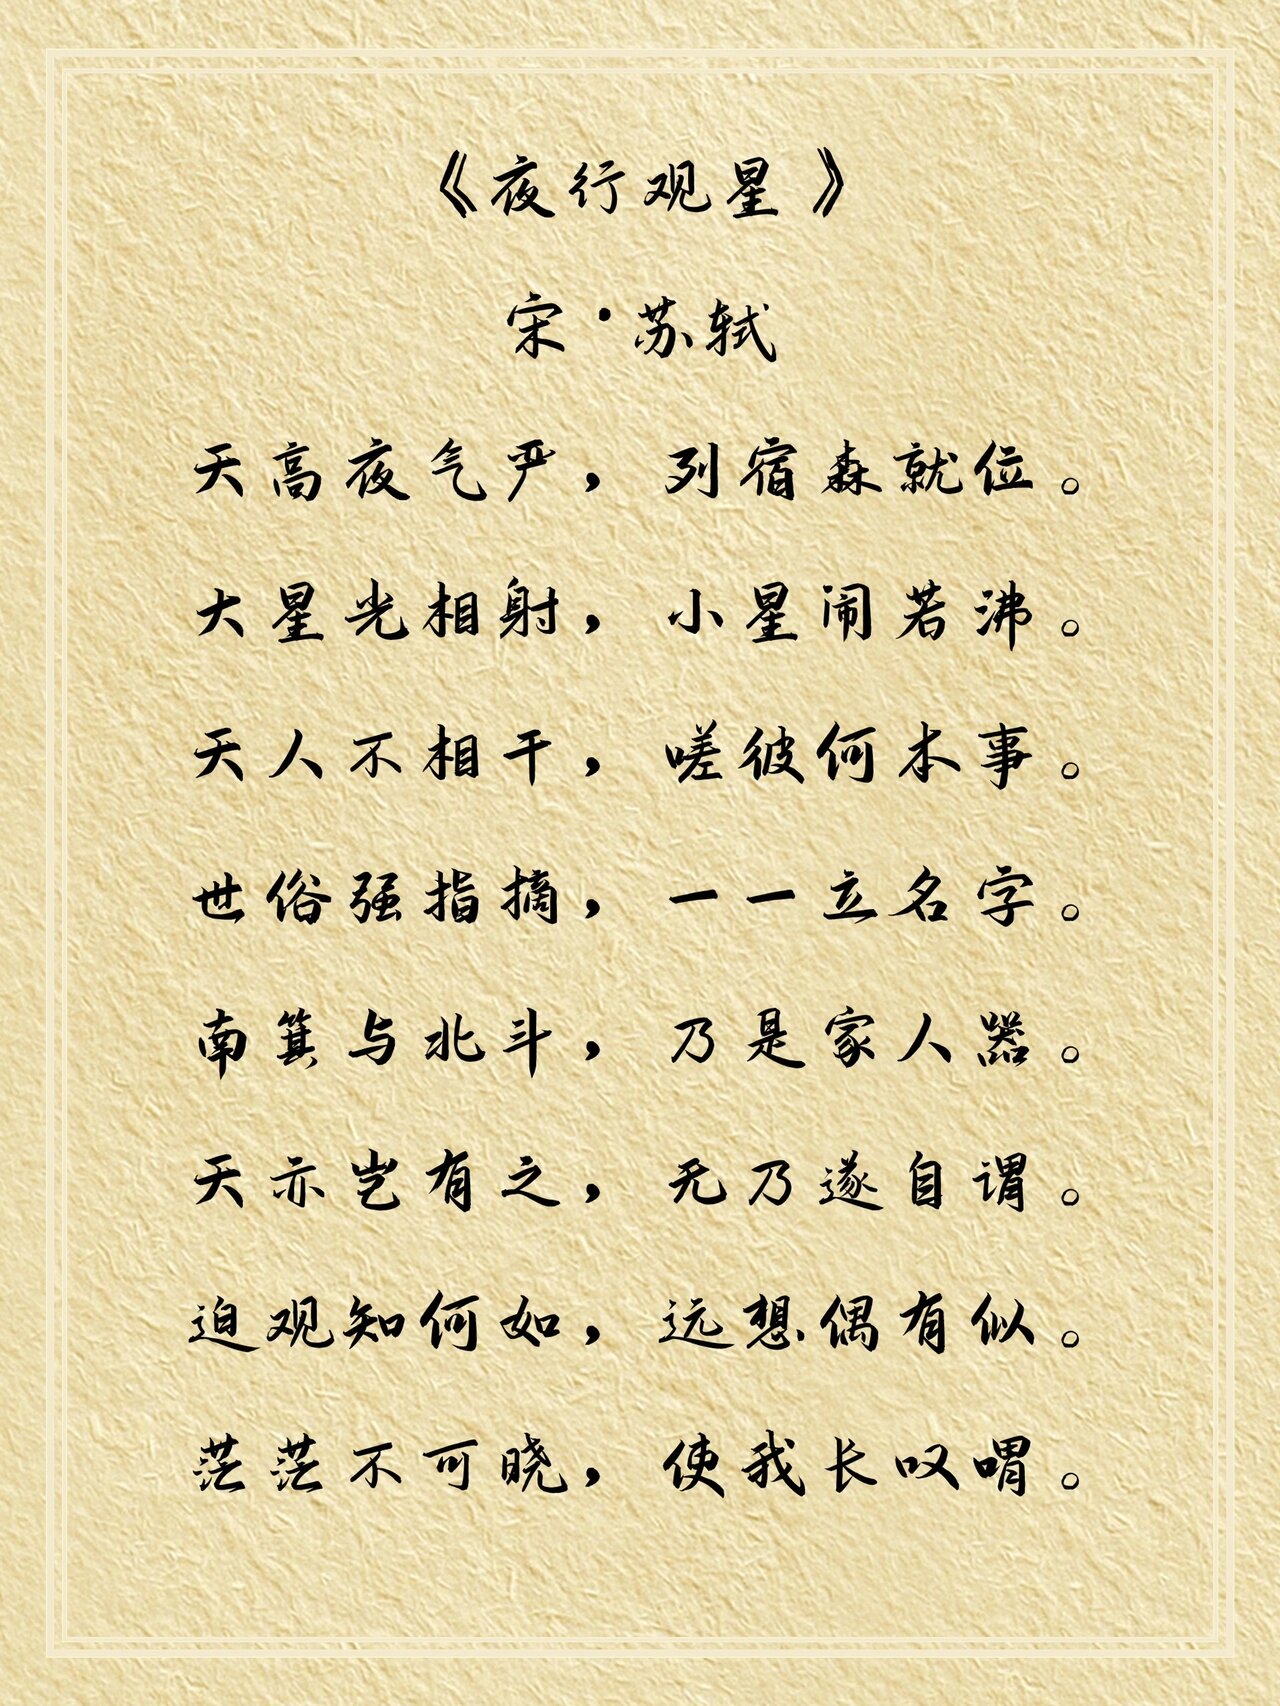 《夜行观星》
宋·苏轼
天高夜气严，列宿森就位。
大星光相射，小星闹若沸。
天人不相干，嗟彼何本事。
世俗强指摘，一一立名字。
南箕与北斗，乃是家人器。
天亦岂有之，无乃遂自谓。
迫观知何如，远想偶有似。
茫茫不可晓，使我长叹喟。